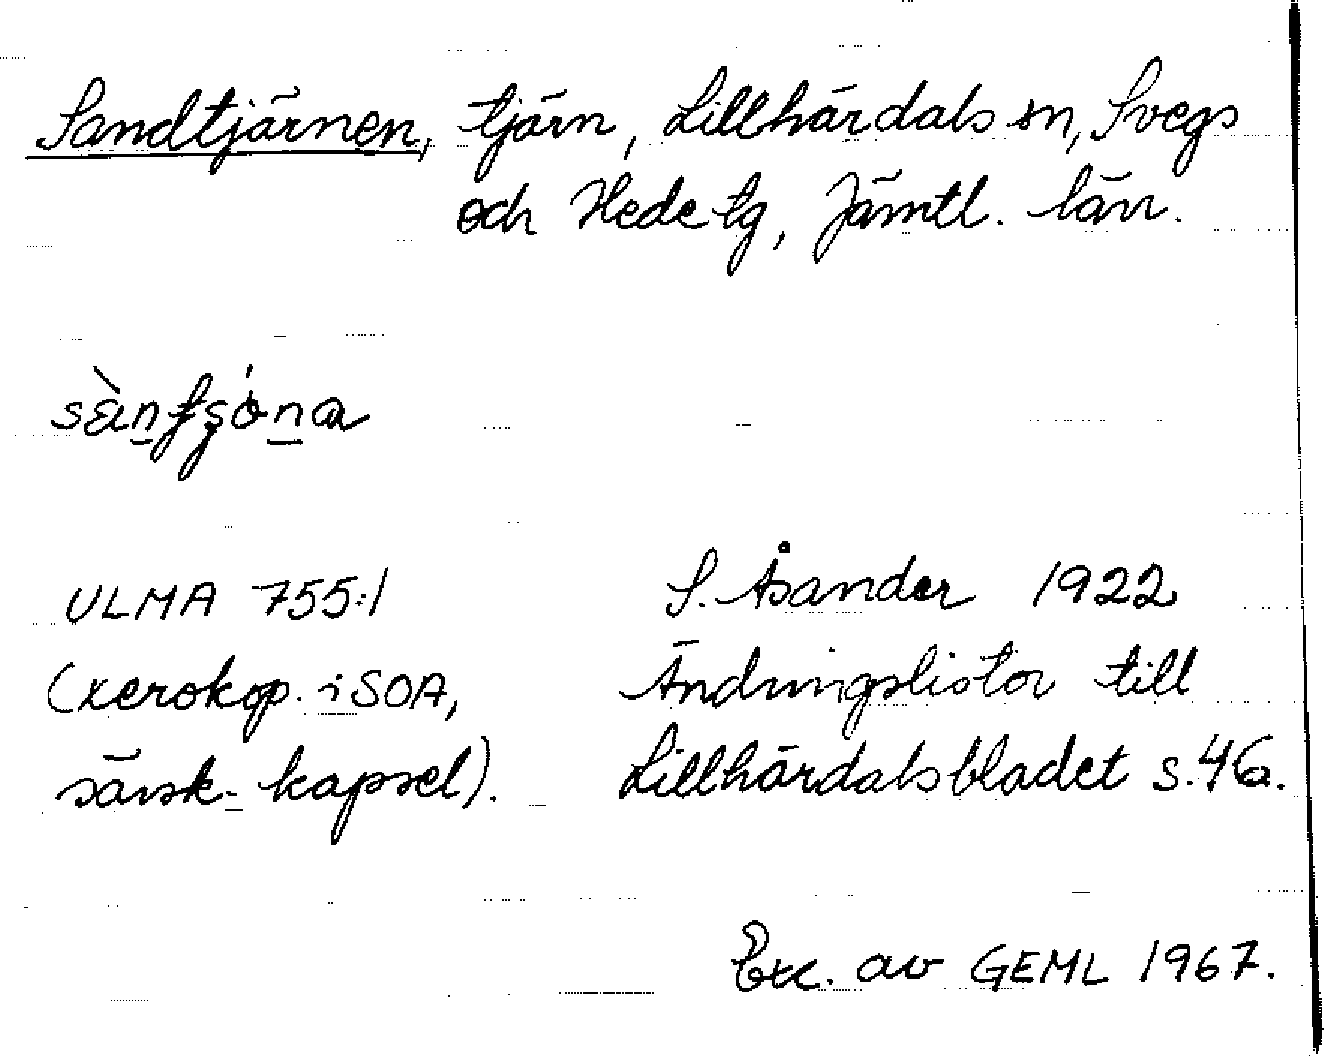 Sandtjärnen, tjärn, Lillhärdals sn, Svegs
och Hede tg, Jämtl. län.
ULMA 755:1
(xerokop. i SOA,
särsk. kapsel).
S. Åsander 1922
Ändringslistor till
Lillhärdalsbladet s. 46.
Exc. av GEML 1967.